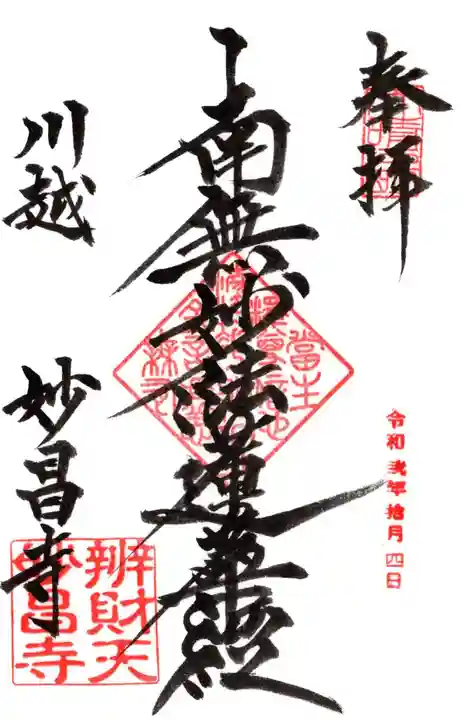 奉拝
令和弐年拾月四日
南無妙法蓮華経
川越 妙昌寺
辨財天
妙昌寺